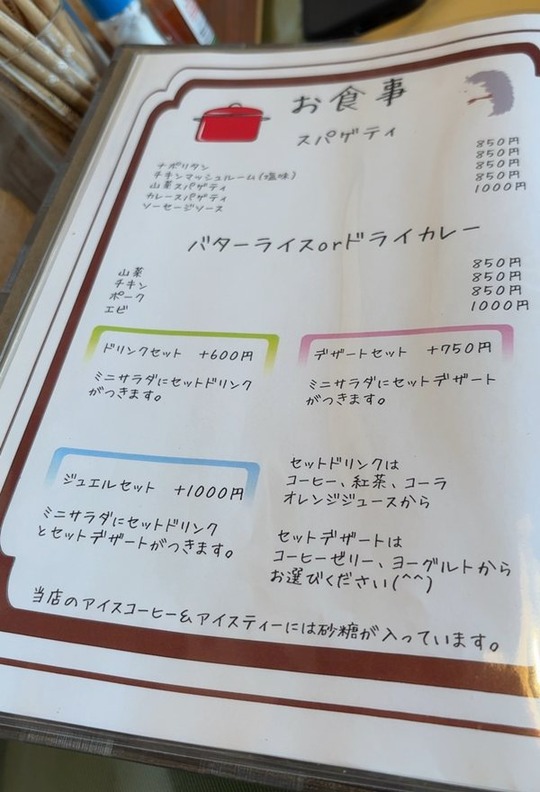 お食事
スパゲティ
ナポリタン 850円
チキンマッシュルーム(塩味) 850円
山菜スパゲティ 850円
カレースパゲティ 850円
ソーセージソース 1000円
バターライスorドライカレー
山菜 850円
チキン 850円
ポーク 850円
エビ 1000円
ドリンクセット +600円
ミニサラダにセットドリンク
がつきます。
デザートセット +750円
ミニサラダにセットデザート
がつきます。
ジュエルセット +1000円
ミニサラダにセットドリンク
とセットデザートがつきます。
セットドリンクは
コーヒー、紅茶、コーラ
オレンジジュースから
セットデザートは
コーヒーゼリー、ヨーグルトから
お選びください(^^)
当店のアイスコーヒー&アイスティーには砂糖が入っています。